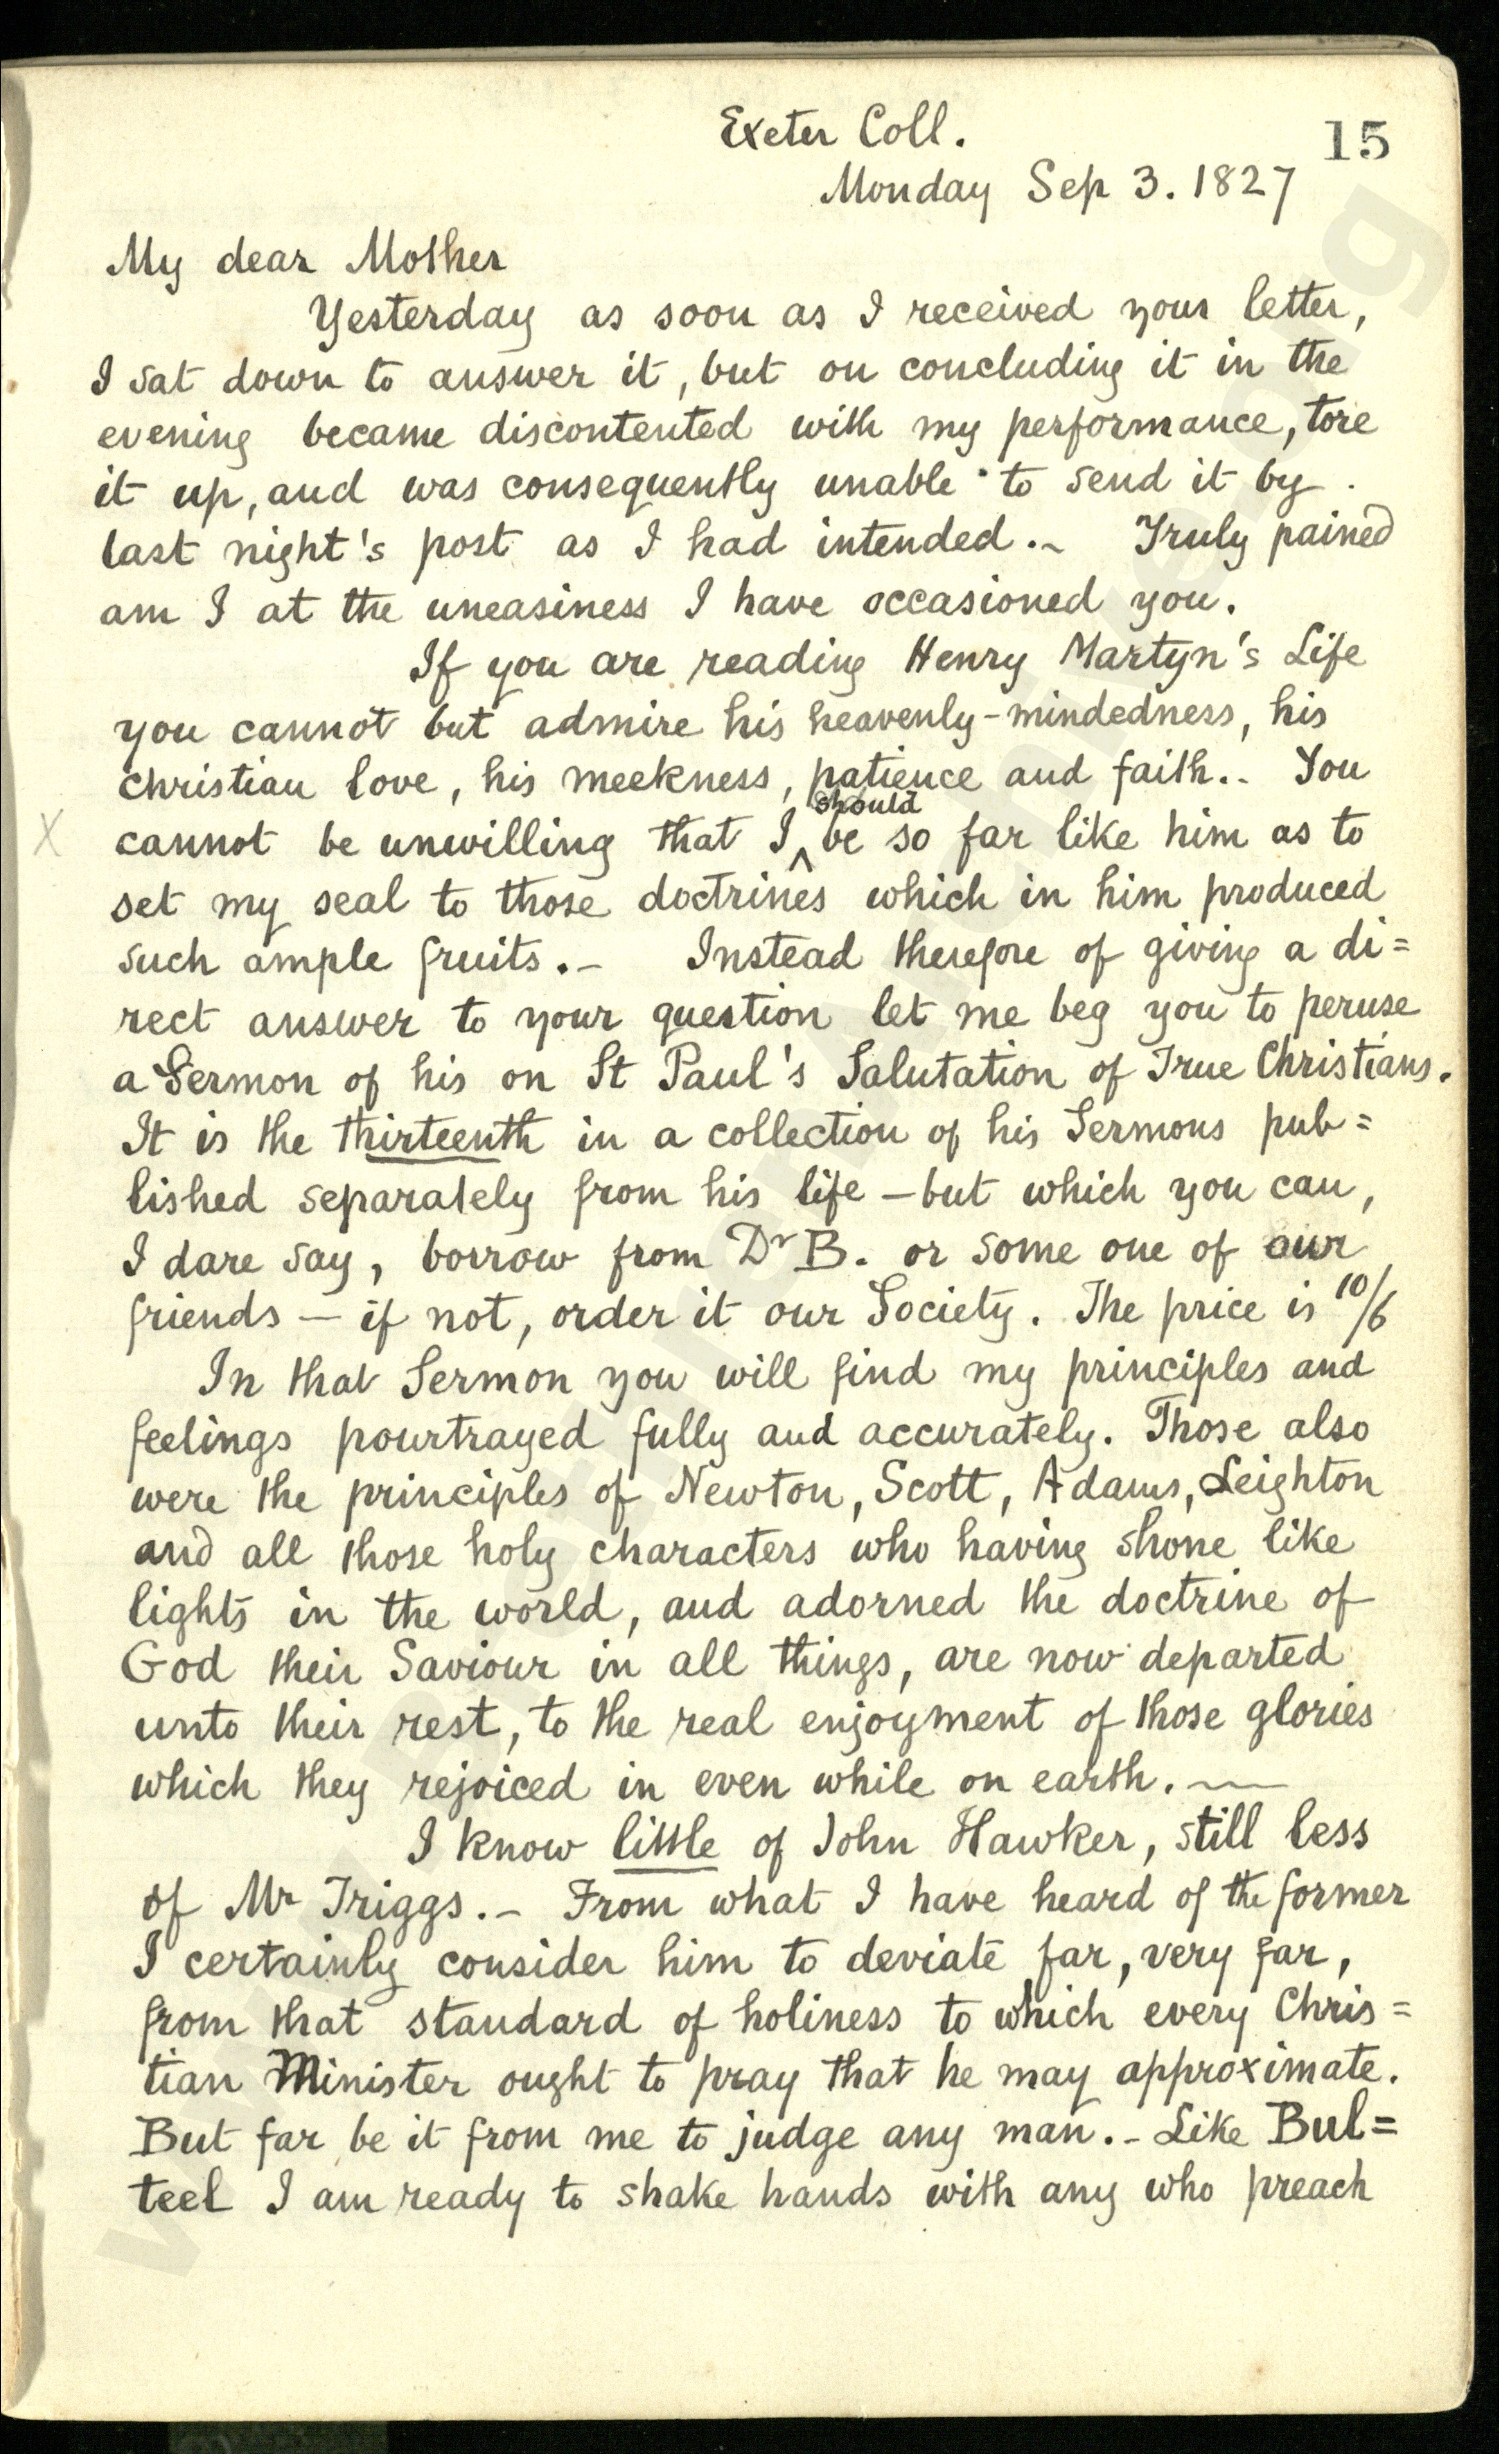 Exeter Coll.
15
Monday Sep 3. 1827
My dear Mother
Yesterday as soon as I received your letter,
I sat down to answer it, but on concluding it in the
evening became discontented with my performance, tore
it up, and was consequently unable to send it by
last night's post as I had intended.- Truly pained
am I at the uneasiness I have occasioned you.
If you are reading Henry Martyn's Life
you cannot but admire his heavenly-mindedness, his
christian love, his meekness, patience and faith.- You
X cannot be unwilling that I ^should be so far like him as to
set my seal to those doctrines which in him produced
such ample fruits.- Instead therefore of giving a di=
rect answer to your question let me beg you to peruse
a Sermon of his on St Paul's Salutation of True Christians.
It is the thirteenth in a collection of his Sermons pub=
lished separately from his life - but which you can,
I dare say, borrow from Dr B. or some one of our
friends - if not, order it our Society. The price is 10/6
In that Sermon you will find my principles and
feelings pourtrayed fully and accurately. Those also
were the principles of Newton, Scott, Adams, Leighton
and all those holy characters who having shone like
lights in the world, and adorned the doctrine of
God their Saviour in all things, are now departed
unto their rest, to the real enjoyment of those glories
which they rejoiced in even while on earth. —
I know little of John Hawker, still less
of Mr Triggs.- From what I have heard of the former
I certainly consider him to deviate far, very far,
from that standard of holiness to which every Chris=
tian Minister ought to pray that he may approximate.
But far be it from me to judge any man.- Like Bul=
teel I am ready to shake hands with any who preach